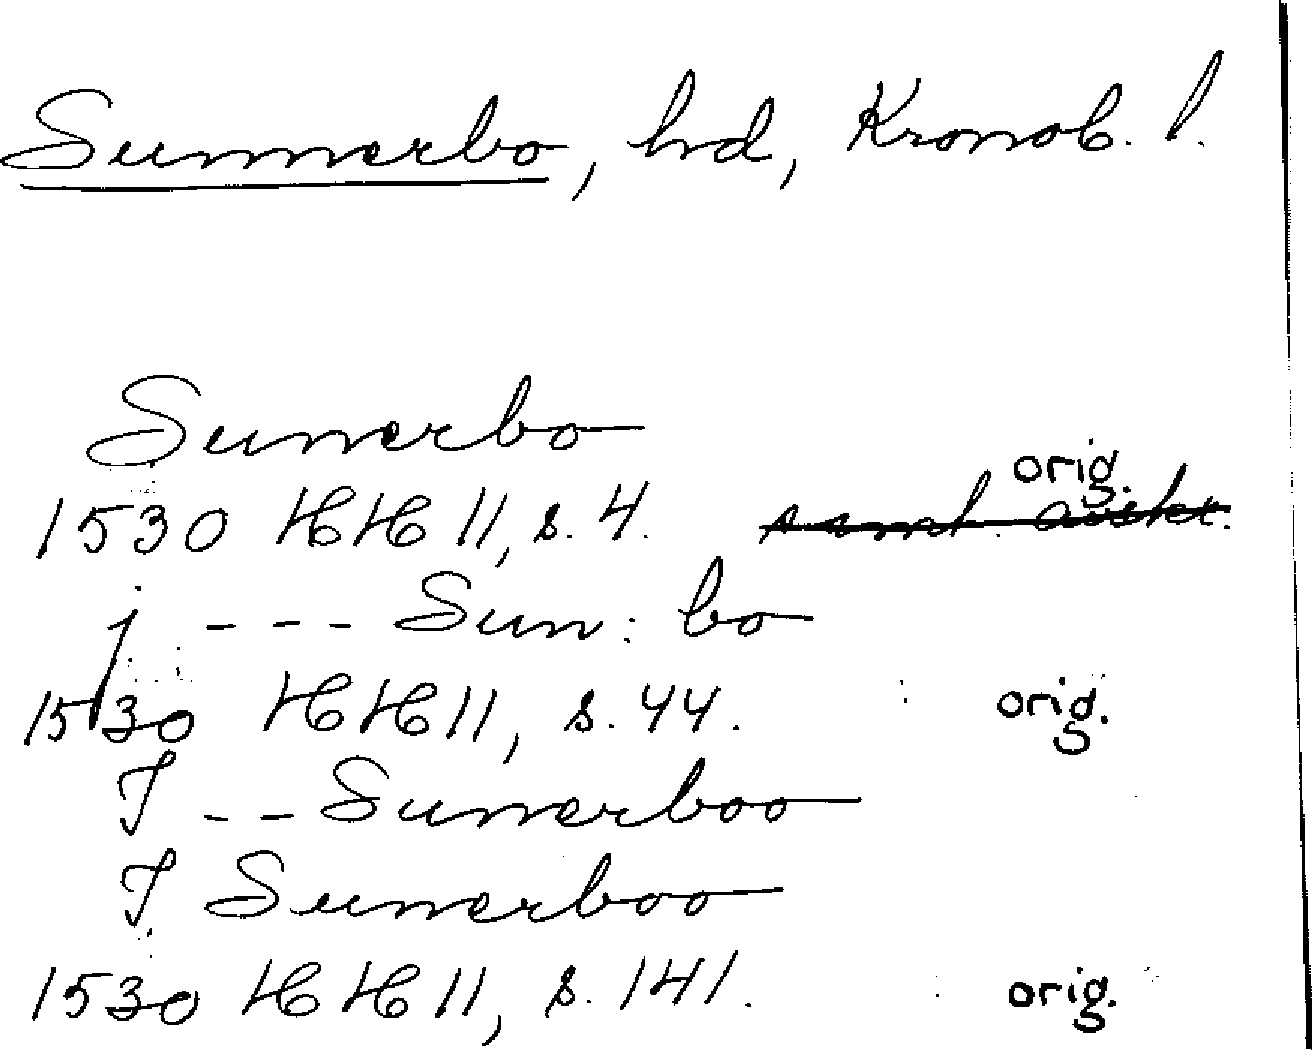 Sunnerbo, hd, Kronob. l.
Sunerbo
orig.
1530 HH 11, s. 4.
j --- Sun: bo
1530 HH 11, s. 44. orig.
J -- Sunerboo
J Sunerboo
1530 HH 11, s. 141. orig.